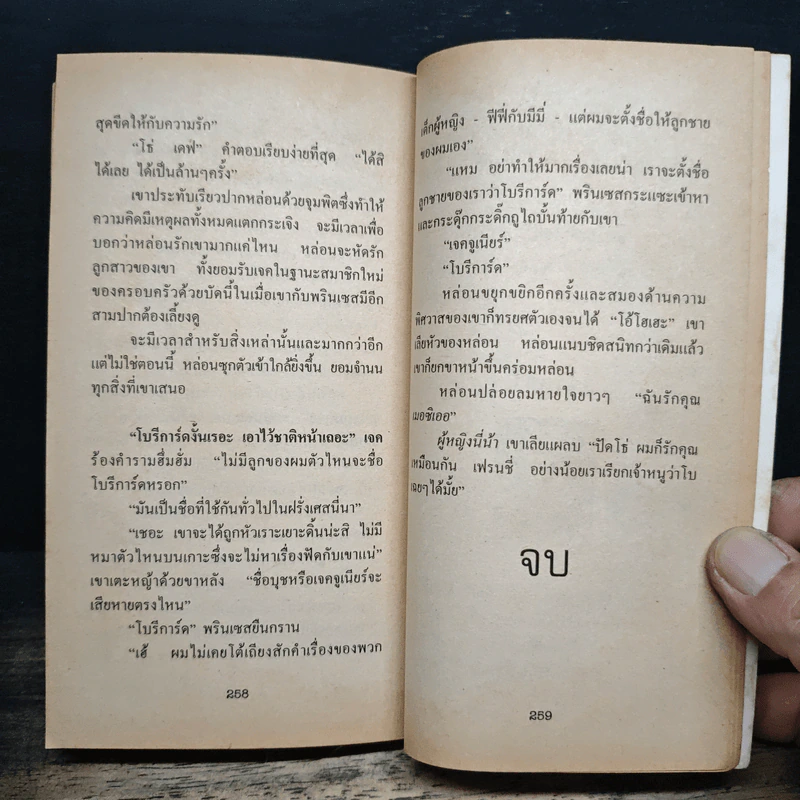 สุดขีดให้กับความรัก”
“โธ่ เดฟ” คำตอบเรียบง่ายที่สุด “ได้สิ
ได้เลย ได้เป็นล้านๆครั้ง”
เขาประทับเรียวปากหล่อนด้วยจุมพิตซึ่งทำให้
ความคิดมีเหตุผลทั้งหมดแตกกระเจิง จะมีเวลาเพื่อ
บอกว่าหล่อนรักเขามากแค่ไหน หล่อนจะหัดรัก
ลูกสาวของเขา ทั้งยอมรับเจคในฐานะสมาชิกใหม่
ของครอบครัวด้วยบัดนี้ในเมื่อเขากับพรินเซสมีอีก
สามปากต้องเลี้ยงดู
จะมีเวลาสำหรับสิ่งเหล่านั้นและมากกว่าอีก
แต่ไม่ใช่ตอนนี้ หล่อนซุกตัวเข้าใกล้ยิ่งขึ้น ยอมจำนน
ทุกสิ่งที่เขาเสนอ
“โบรีการ์ดงั้นเรอะ เอาไว้ชาติหน้าเถอะ” เจค
ร้องคำรามฮึ่มฮั่ม “ไม่มีลูกของผมตัวไหนจะชื่อ
โบรีการ์ดหรอก”
“มันเป็นชื่อที่ใช้กันทั่วไปในฝรั่งเศสนี่นา”
“เชอะ เขาจะได้ถูกหัวเราะเยาะดิ้นน่ะสิ ไม่มี
หมาตัวไหนบนเกาะซึ่งจะไม่หาเรื่องฟัดกับเขาแน่”
เขาเตะหญ้าด้วยขาหลัง “ชื่อบุชหรือเจคจูเนียร์จะ
เสียหายตรงไหน”
“โบรีการ์ด” พรินเซสยืนกราน
“เฮ้ ผมไม่เคยโต้เถียงสักคำเรื่องของพวก
258
เด็กผู้หญิง - ฟีฟี่กับมีมี่ - แต่ผมจะตั้งชื่อให้ลูกชาย
ของผมเอง”
“แหม อย่าทำให้มากเรื่องเลยน่า เราจะตั้งชื่อ
ลูกชายของเราว่าโบรีการ์ด” พรินเซสกระแซะเข้าหา
และกระดุ๊กกระดิ๊กถูไถบั้นท้ายกับเขา
“เจคจูเนียร์”
“โบรีการ์ด”
หล่อนขยุกขยิกอีกครั้งและสมองด้านความ
พิศวาสของเขาก็ทรยศตัวเองจนได้ “โอ้โฮเฮะ” เขา
เลียหัวของหล่อน หล่อนแนบชิดสนิทกว่าเดิมแล้ว
เขาก็ยกขาหน้าขึ้นคร่อมหล่อน
หล่อนปล่อยลมหายใจยาวๆ “ฉันรักคุณ
เมอซิเออ”
ผู้หญิงนี่น้า เขาเลียแผลบ “ปัดโธ่ ผมก็รักคุณ
เหมือนกัน เฟรนชี่ อย่างน้อยเราเรียกเจ้าหนูว่าโบ
เฉยๆได้มั้ย”
จบ
259